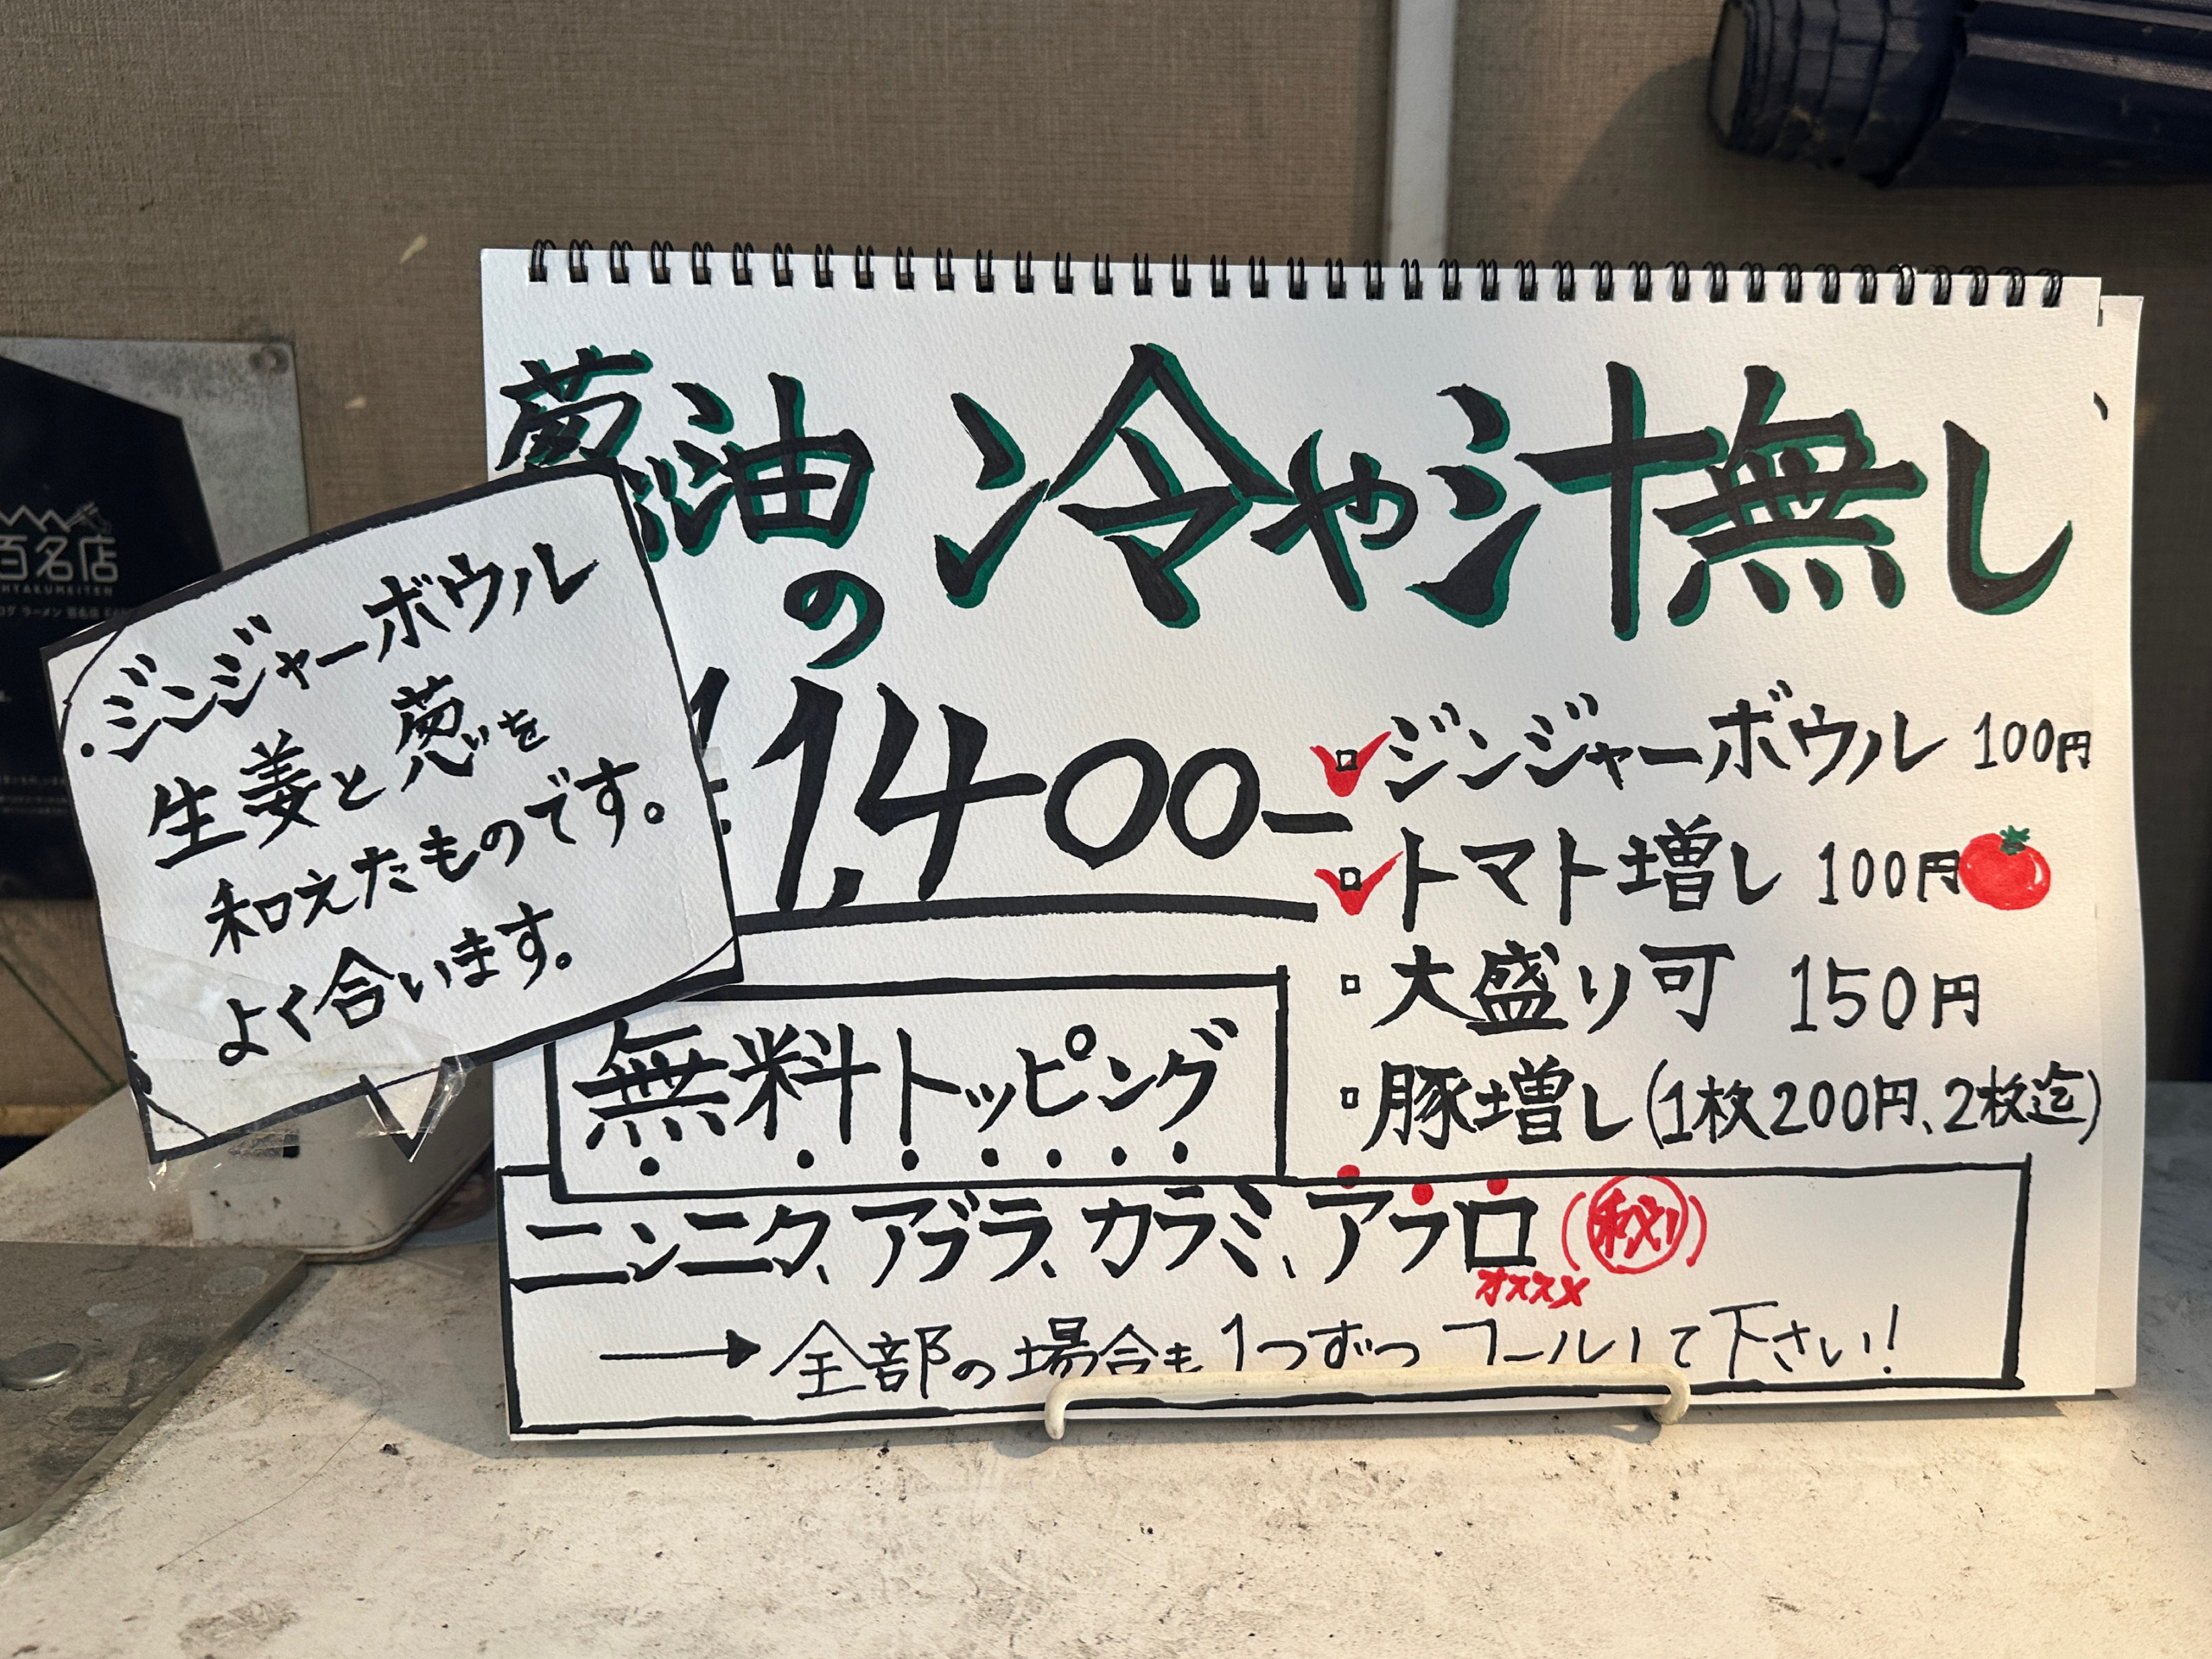 葱油の冷や汁無し
¥1,400-
・ジンジャーボウル
生姜と葱を
和えたものです。
よく合います。
ジンジャーボウル 100円
トマト増し 100円
大盛り可 150円
豚増し(1枚200円、2枚迄)
無料トッピング
ニンニク、アブラ、カラミ、アフロ(秘)
オススメ
→全部の場合も1つずつコールして下さい!
百名店
HYAKUMEITEN